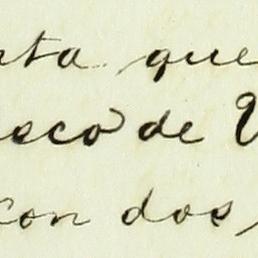 rta que
sco de V
con dos,